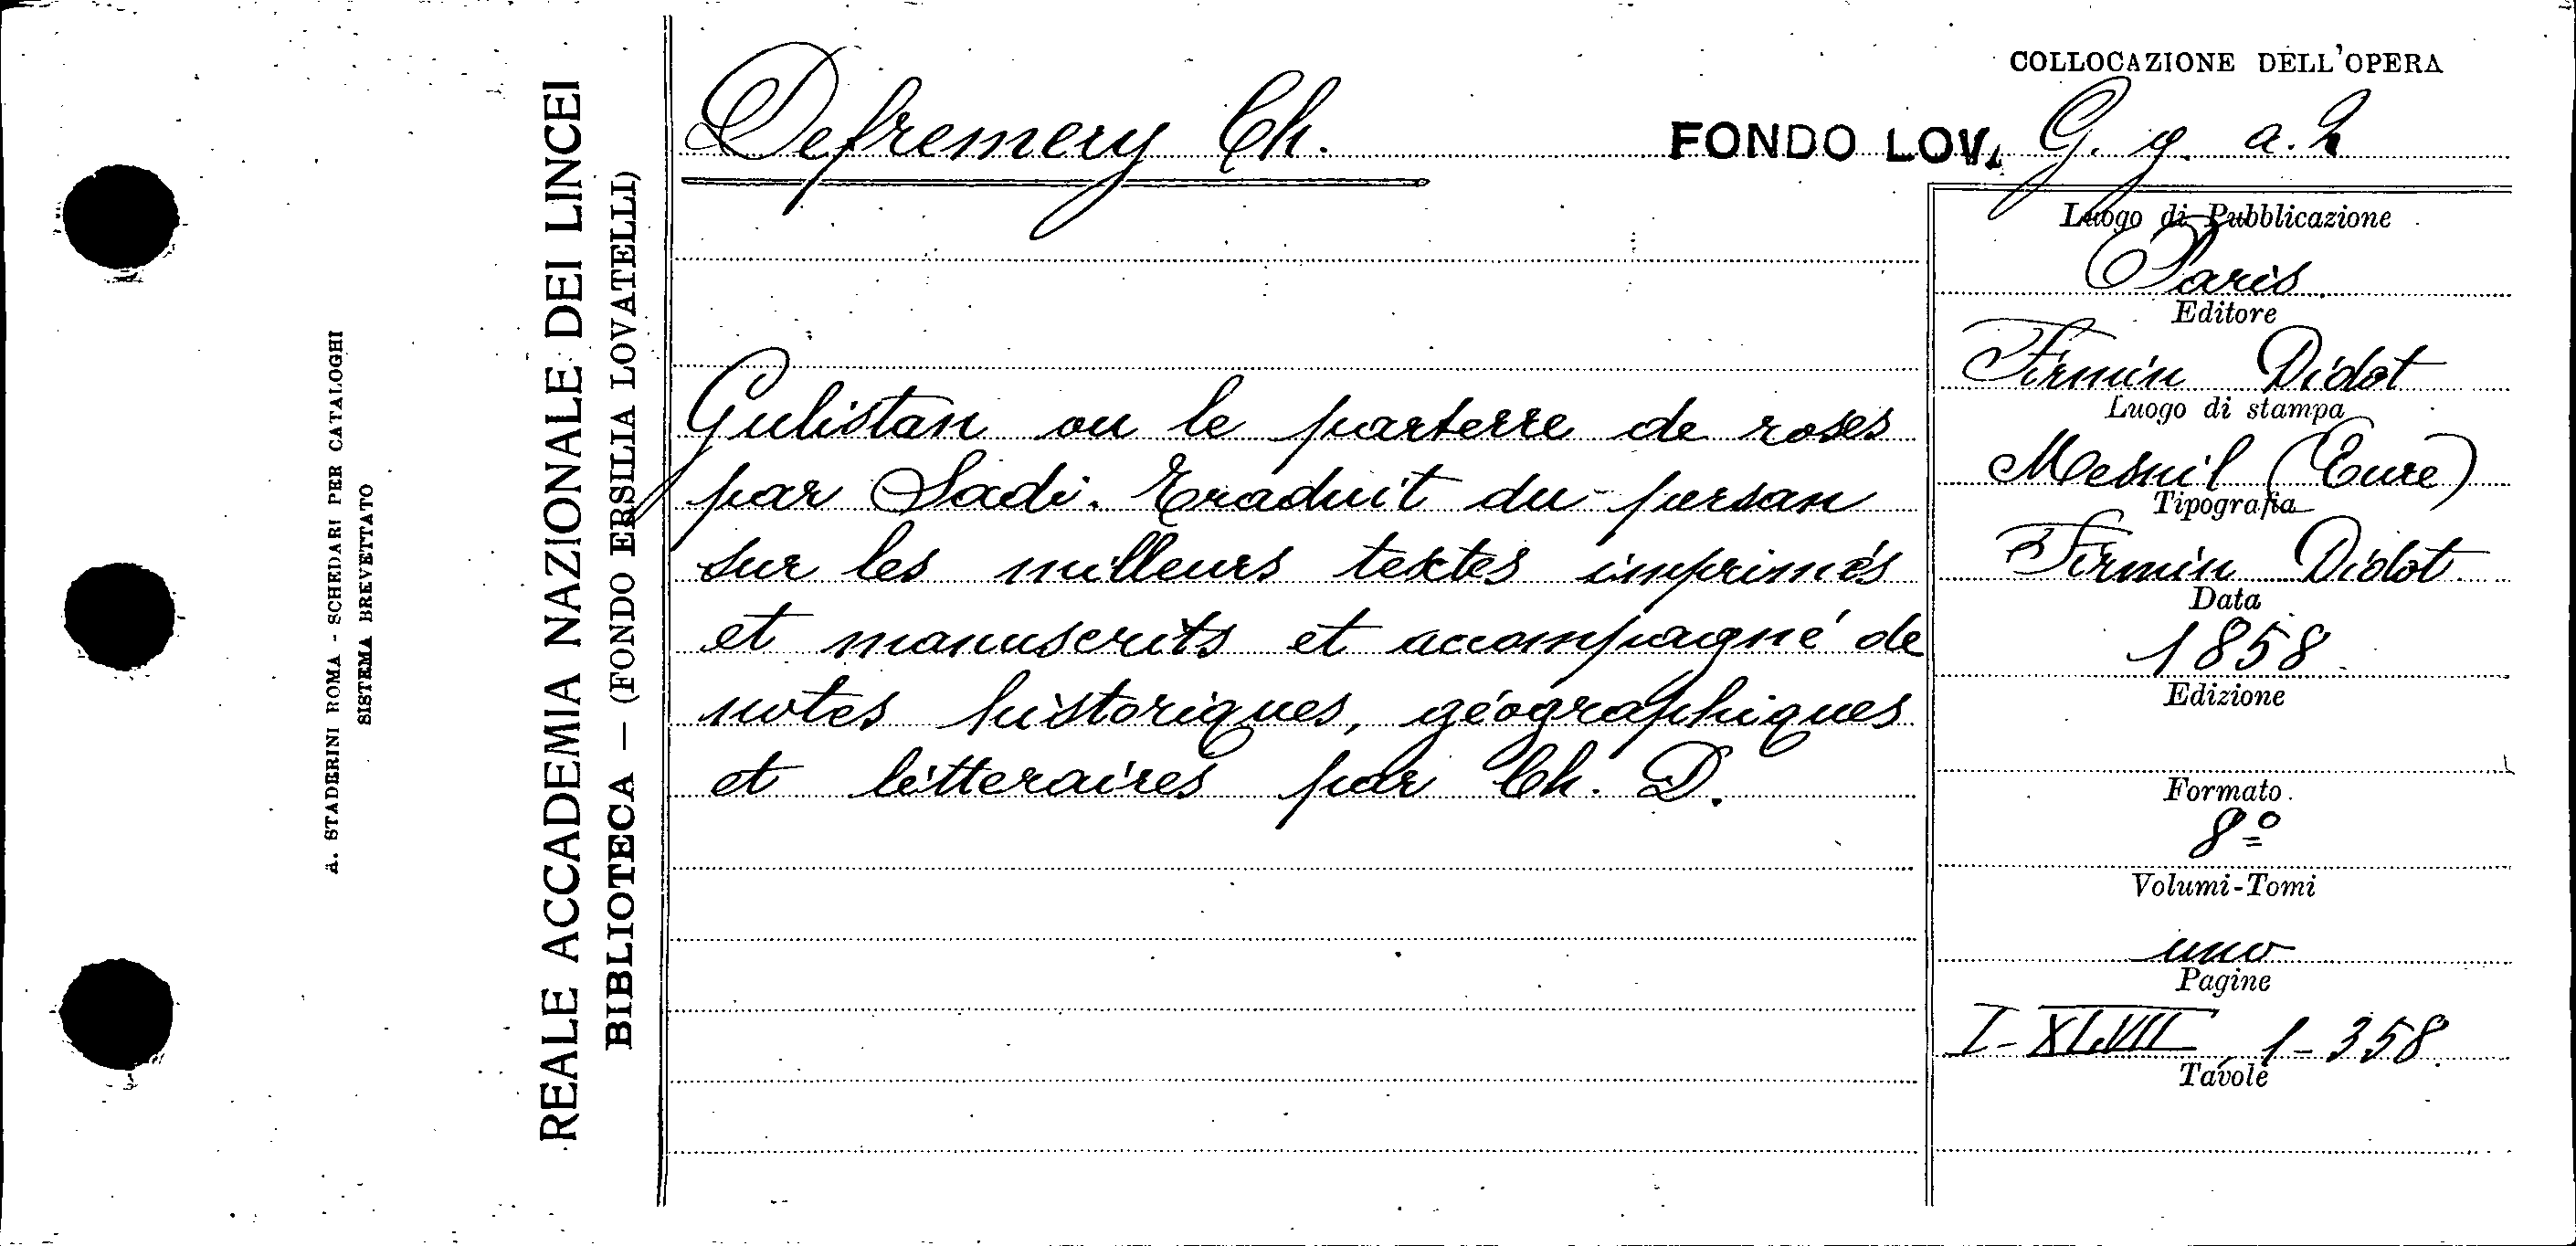 A. STADERINI ROMA - SCHEDARI PER CATALOGHI
SISTEMA BREVETTATO
REALE ACCADEMIA NAZIONALE DEI LINCEI
BIBLIOTECA — (FONDO ERSILIA LOVATELLI)
COLLOCAZIONE DELL'OPERA
Defremery Ch.
FONDO LOV. G. g. a. 2
Gulistan ou le parterre de roses
par Sadi. Traduit du persan
sur les milleurs textes imprimés
et manuscrits et accompagné de
notes historiques, géographiques
et litteraires par Ch. D.
Luogo di Pubblicazione
Paris
Editore
Firmin Didot
Luogo di stampa
Mesnil (Eure)
Tipografia
Firmin Didot
Data
1858
Edizione
Formato
8º
Volumi-Tomi
uno
Pagine
I-XLVII 1-358.
Tavole